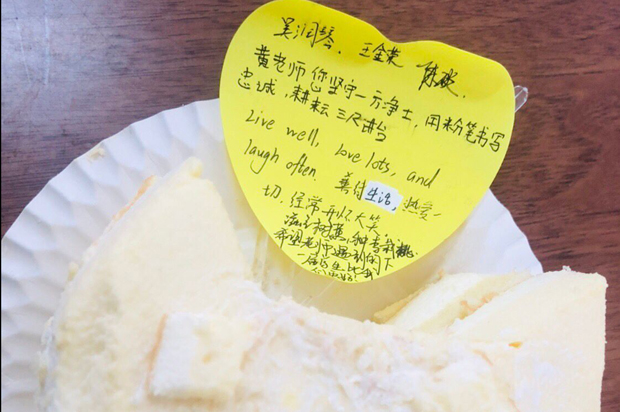 吴润琴、王金荣 陈
黄老师您坚守一方净土,用粉笔书写
忠诚,耕耘三尺讲台
Live well, love lots, and
laugh often 善待生活,热爱一
切,经常开怀大笑.
希望老师遇到的下
一届学生比我